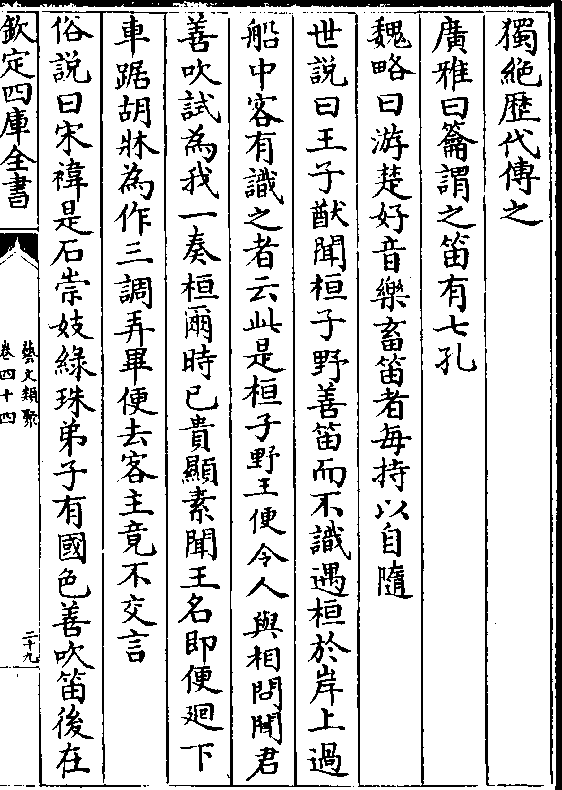 獨絶歴代傳之
廣雅曰籥謂之笛有七孔
魏略曰游楚好音樂畜笛者每持以自隨
世説曰王子猷聞桓子野善笛而不識遇桓於岸上過
船中客有識之者云此是桓子野王便令人與相問聞君
善吹試為我一奏桓爾時已貴顯素聞王名即便廻下
車踞胡牀為作三調弄畢便去客主竟不交言
俗説曰宋褘是石崇妓綠珠弟子有國色善吹笛後在
欽定四庫全書
藝文類聚
卷四十四
二十九